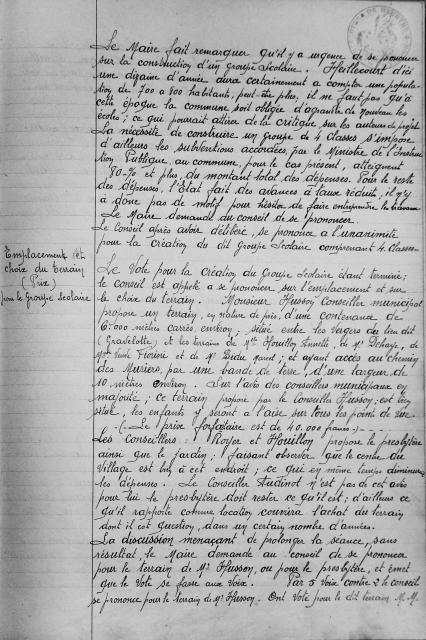 Le Maire fait remarquer qu'il y a urgence de se prononcer
sur la construction d'un groupe Scolaire. Heillecourt d'ici
une dizaine d'année aura certainement a compter une popula-
tion de 700 a 800 habitants, peut-être plus, il ne faut pas qu'à
cette époque la commune soit obligée d'agrandir de nouveau les
écoles; ce qui pourrait attirer de la critique, sur les auteurs du projet
La nécessité de construire un groupe de 4 classes s'impose
d'ailleurs les subventions accordées, par le Ministre de l'Instruc-
tion Publique, au commune, pour le cas présent, atteignent
80% et plus, du montant total des dépenses. Pour le reste
des dépenses, l'État fait des avances à taux réduit, il n'y
a donc pas de motif pour hésiter de faire entreprendre les travaux
Le Maire demande au conseil de se prononcer.
Le Conseil après avoir délibéré, se prononce a l'unanimité
pour la création du dit groupe Scolaire comprenant 4 classes
Emplacement et
choix du terrain
(Prix)
pour le Groupe Scolaire
Le Vote pour la création du Groupe Scolaire étant terminé;
le conseil est appelé a se prononcer sur l'emplacement et sur
le choix du terrain. Monsieur Husson Conseiller municipal
propose un terrain, en nature de prés, d'une contenance de
6.000 mètres carrés environ, situé entre les vergers du lieu dit
(Gravelotte) et les terrains de Mlle Houillon Annette, de Mr
Mme Veuve et de Mr ; et ayant accès au chemin
des Muriers, par une bande de terre, d'une largeur de
10 mètres environ. Sur l'avis des conseillers municipaux en
majorité; ce terrain proposé par le Conseiller Husson; est bien
situé, les enfants y seront a l'aise sur tous les points de vue
(Le prix forfaitaire est de 40.000 francs)
Les conseillers: Royer et Houillon propose le presbytère
ainsi que le jardin; faisant observer que le centre du
Village est bien à cet endroit; ce qui en même temps diminuera
les dépenses. Le Conseiller Audinot n'est pas de cet avis
pour lui le presbytère doit rester ce qu'il est; d'ailleurs ce
qu'il rapporte comme location couvrira l'achat du terrain
dont il est question, dans un certain nombre d'années.
La discussion menaçant de prolonger la séance, sans
résultat, le Maire demande au conseil de se prononcer
pour le terrain de Mr Husson, ou pour le presbytère, et émet
que le Vote se fasse aux Voix. Par 5 voix contre 2 le conseil
se prononce pour le terrain de Mr Husson. Ont Voté pour le dit terrain M.M.